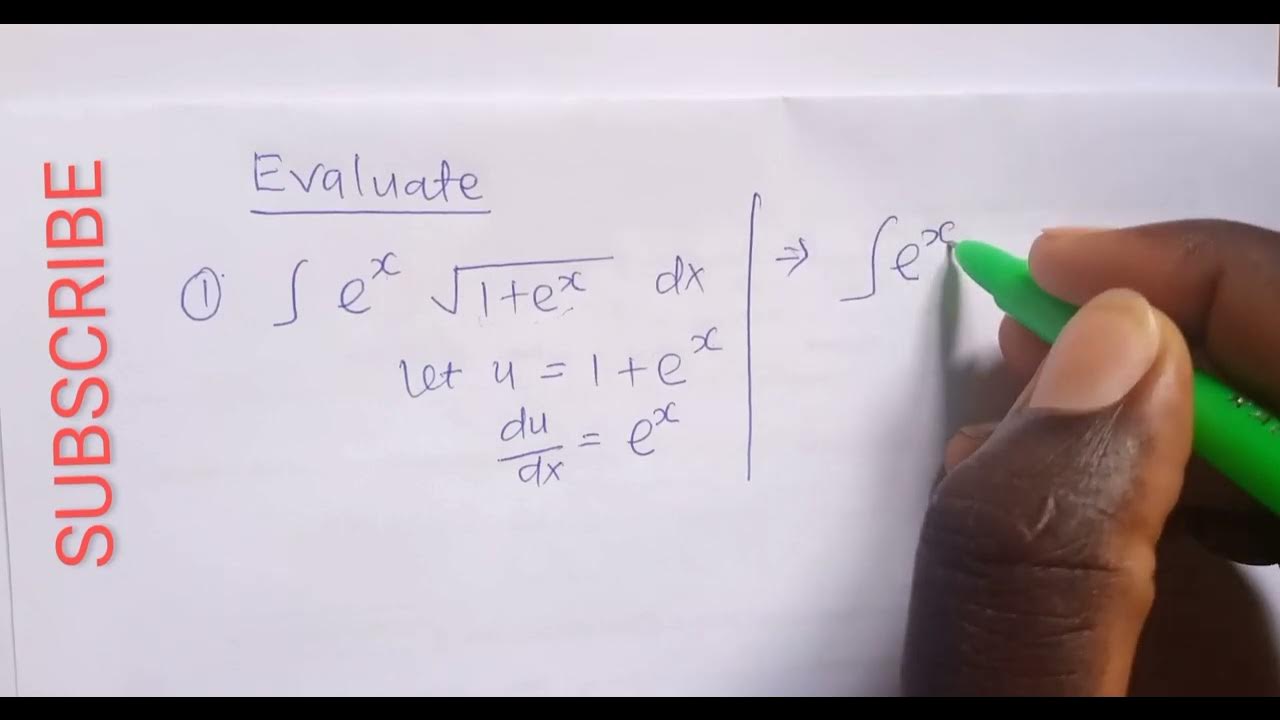 SUBSCRIBE
Evaluate
① ∫ e^x √(1+e^x) dx
Let u = 1 + e^x
du/dx = e^x
⇒ ∫e^x